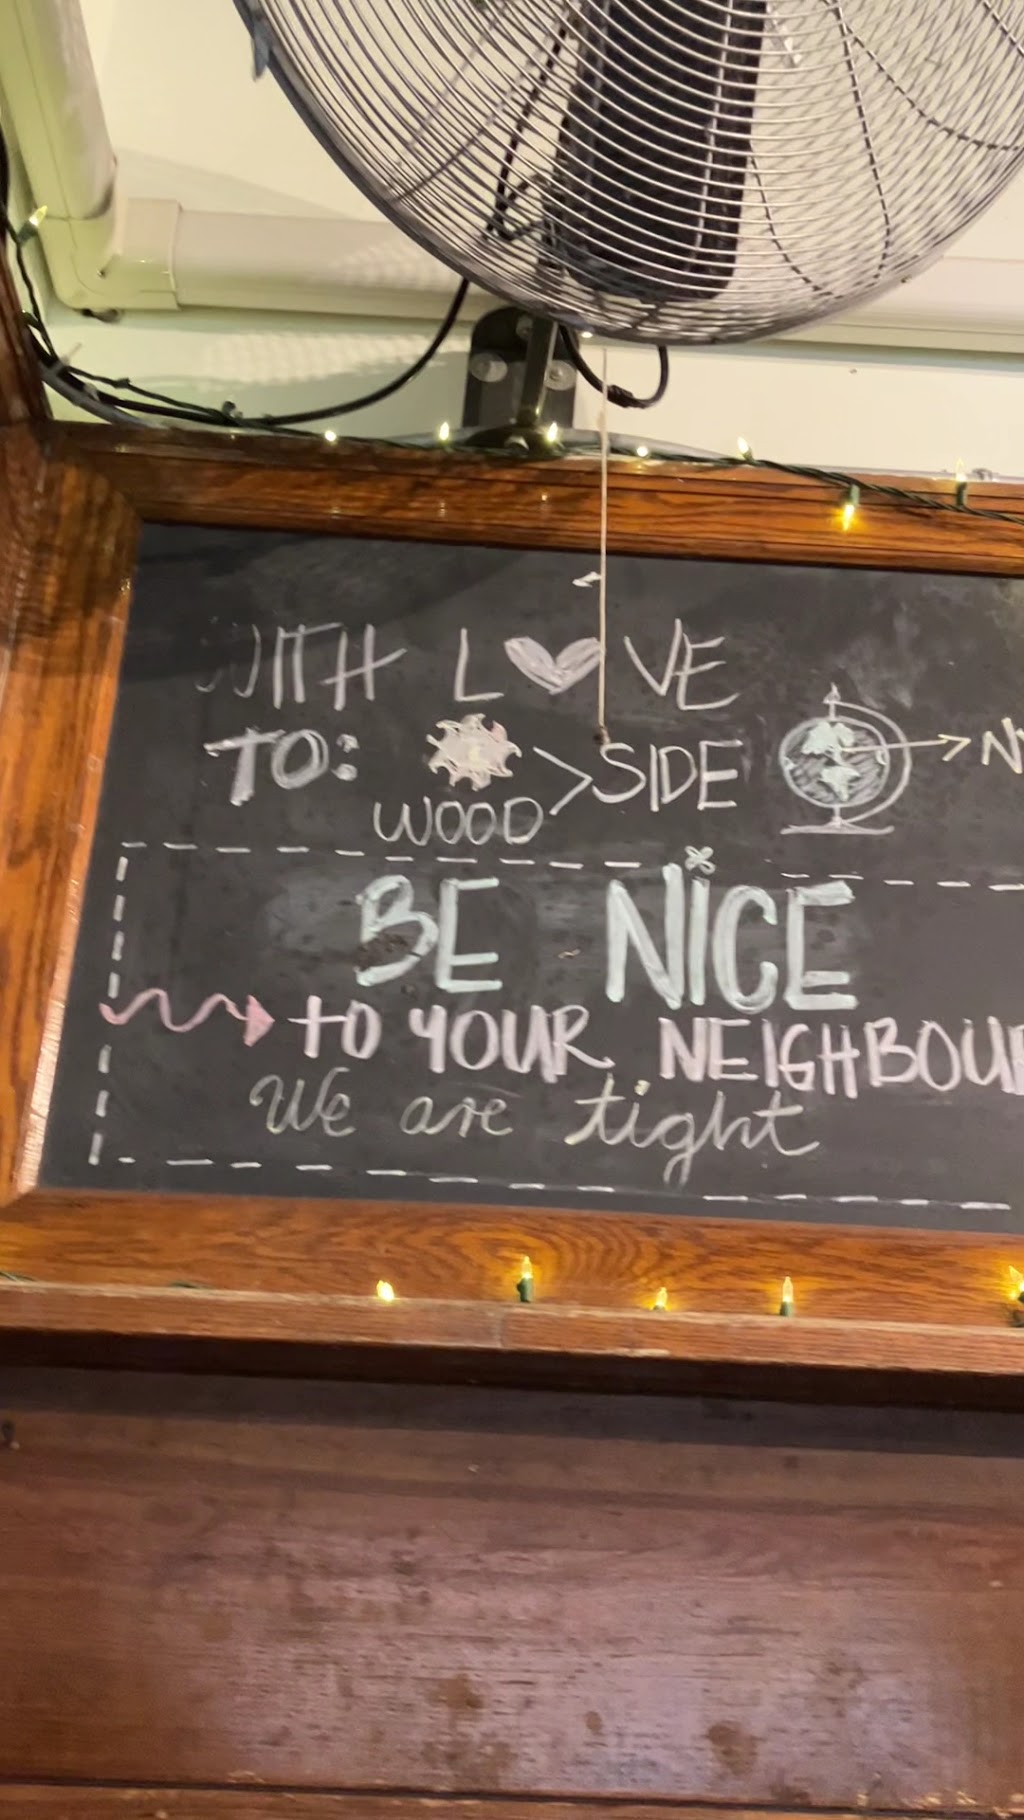 WITH LOVE
TO: SIDE
WOOD
BE NICE
to YOUR NEIGHBOU
We are tight